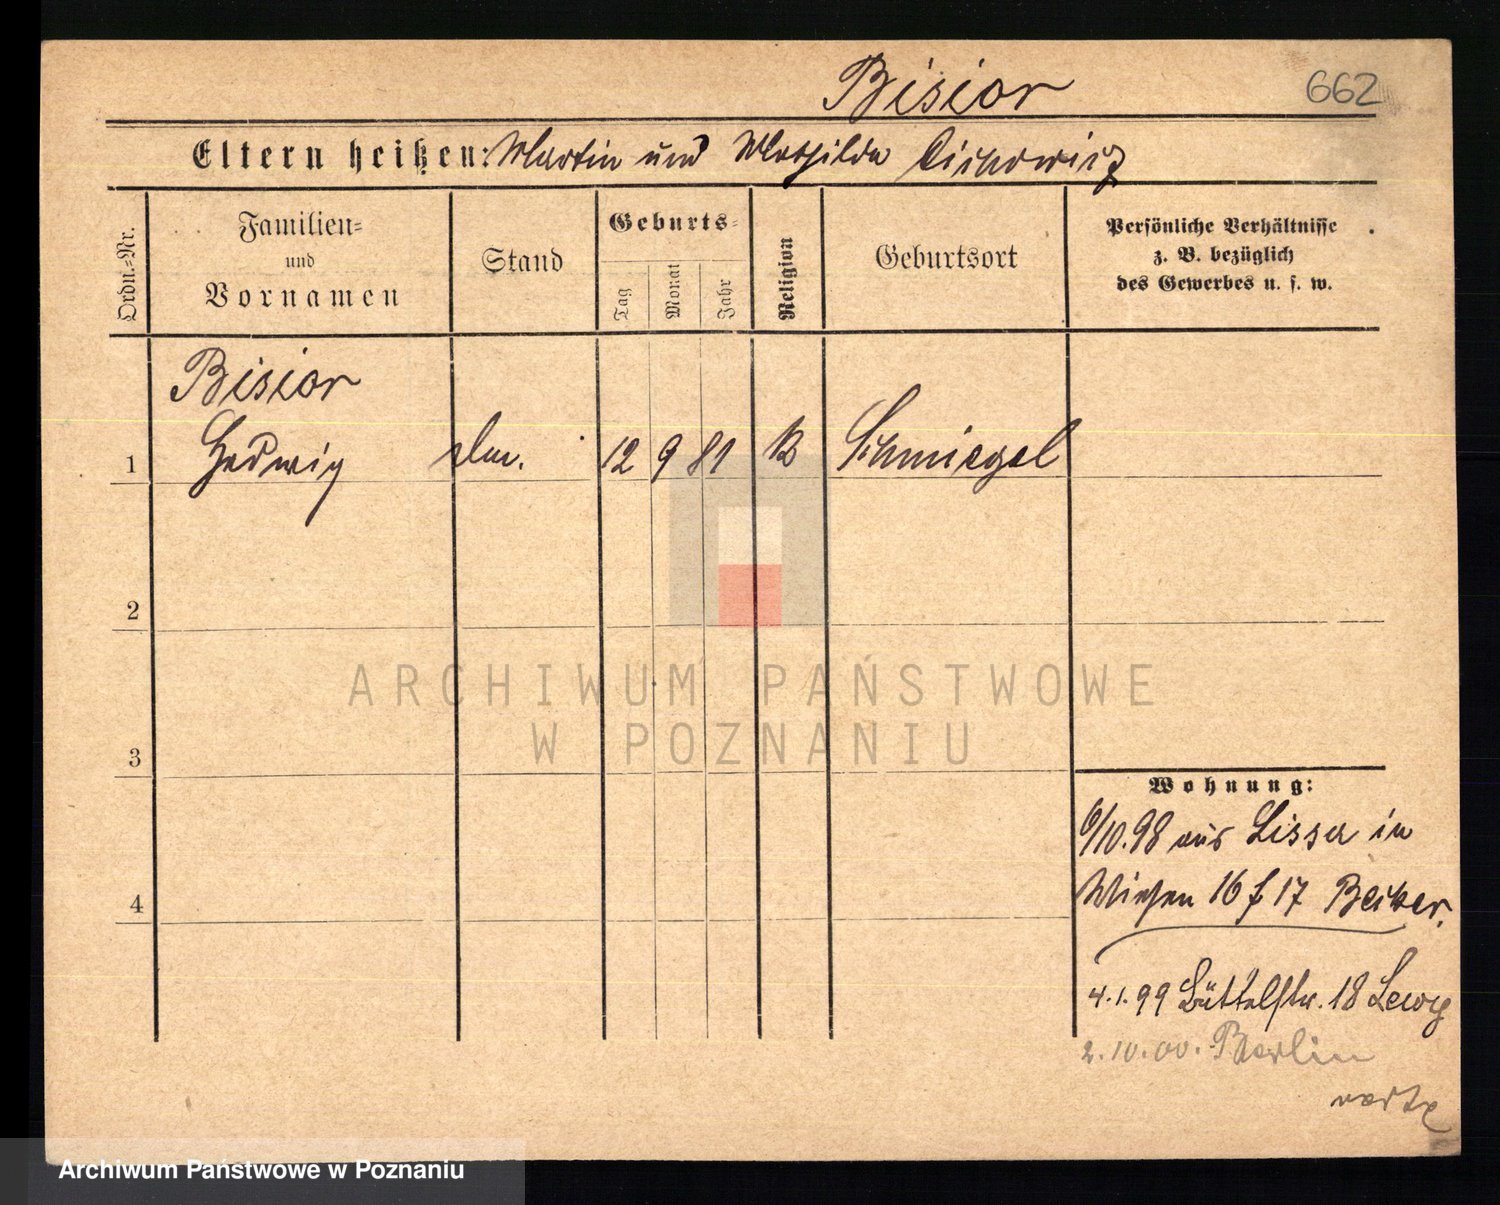 Bisior
662
Eltern heißen: Martin und Mathilda Cichowicz
Ordn.-Nr.
Familien- und Vornamen
Stand
Geburts-
Tag
Monat
Jahr
Religion
Geburtsort
Persönliche Verhältnisse
z. B. bezüglich
des Gewerbes u. s. w.
Bisior
1 Hedwig 12 9 81 K Schmiegel
2
3
4
Wohnung:
6/10.98 aus Lissa in
Wiesen 16 17
4.1.99 Büttelstr. 18 Lewy
2.10.00. Berlin
ARCHIWUM PAŃSTWOWE
W POZNANIU
Archiwum Państwowe w Poznaniu